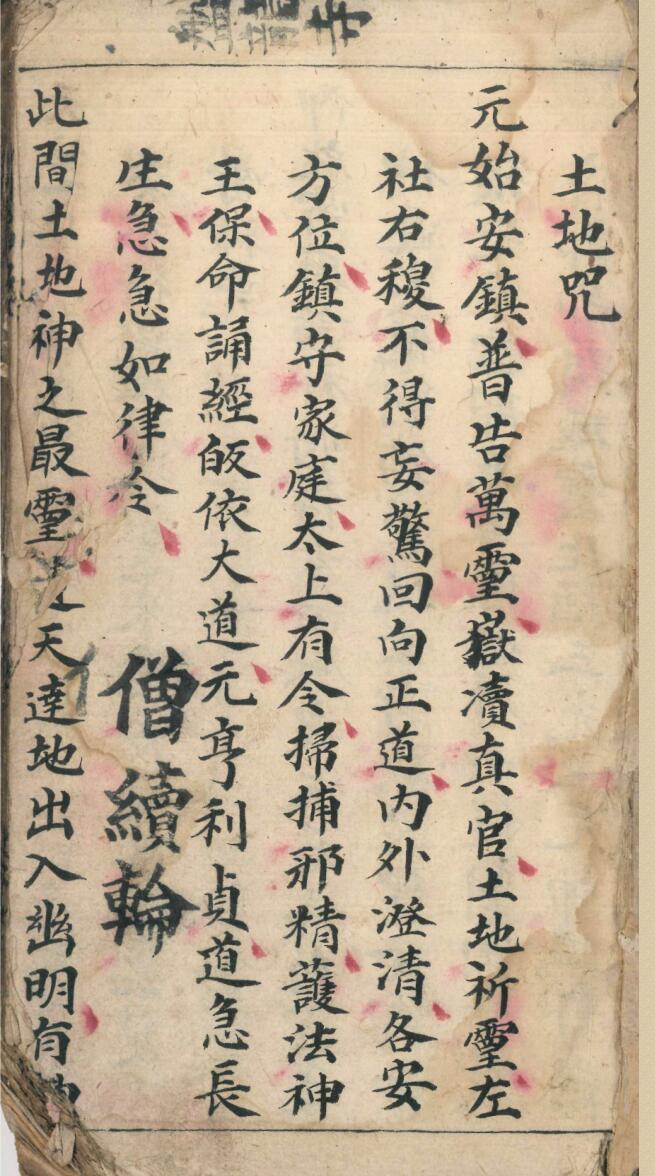 土地咒
元始安鎮普告萬靈嶽凟真官土地祈靈左
社右稷不得妄驚回向正道內外澄清各安
方位鎮守家庭太上有令掃捕邪精護法神
王保命誦經皈依大道元亨利貞道急長
生急急如律令
僧續輪
此間土地神之最靈天達地出入幽明有